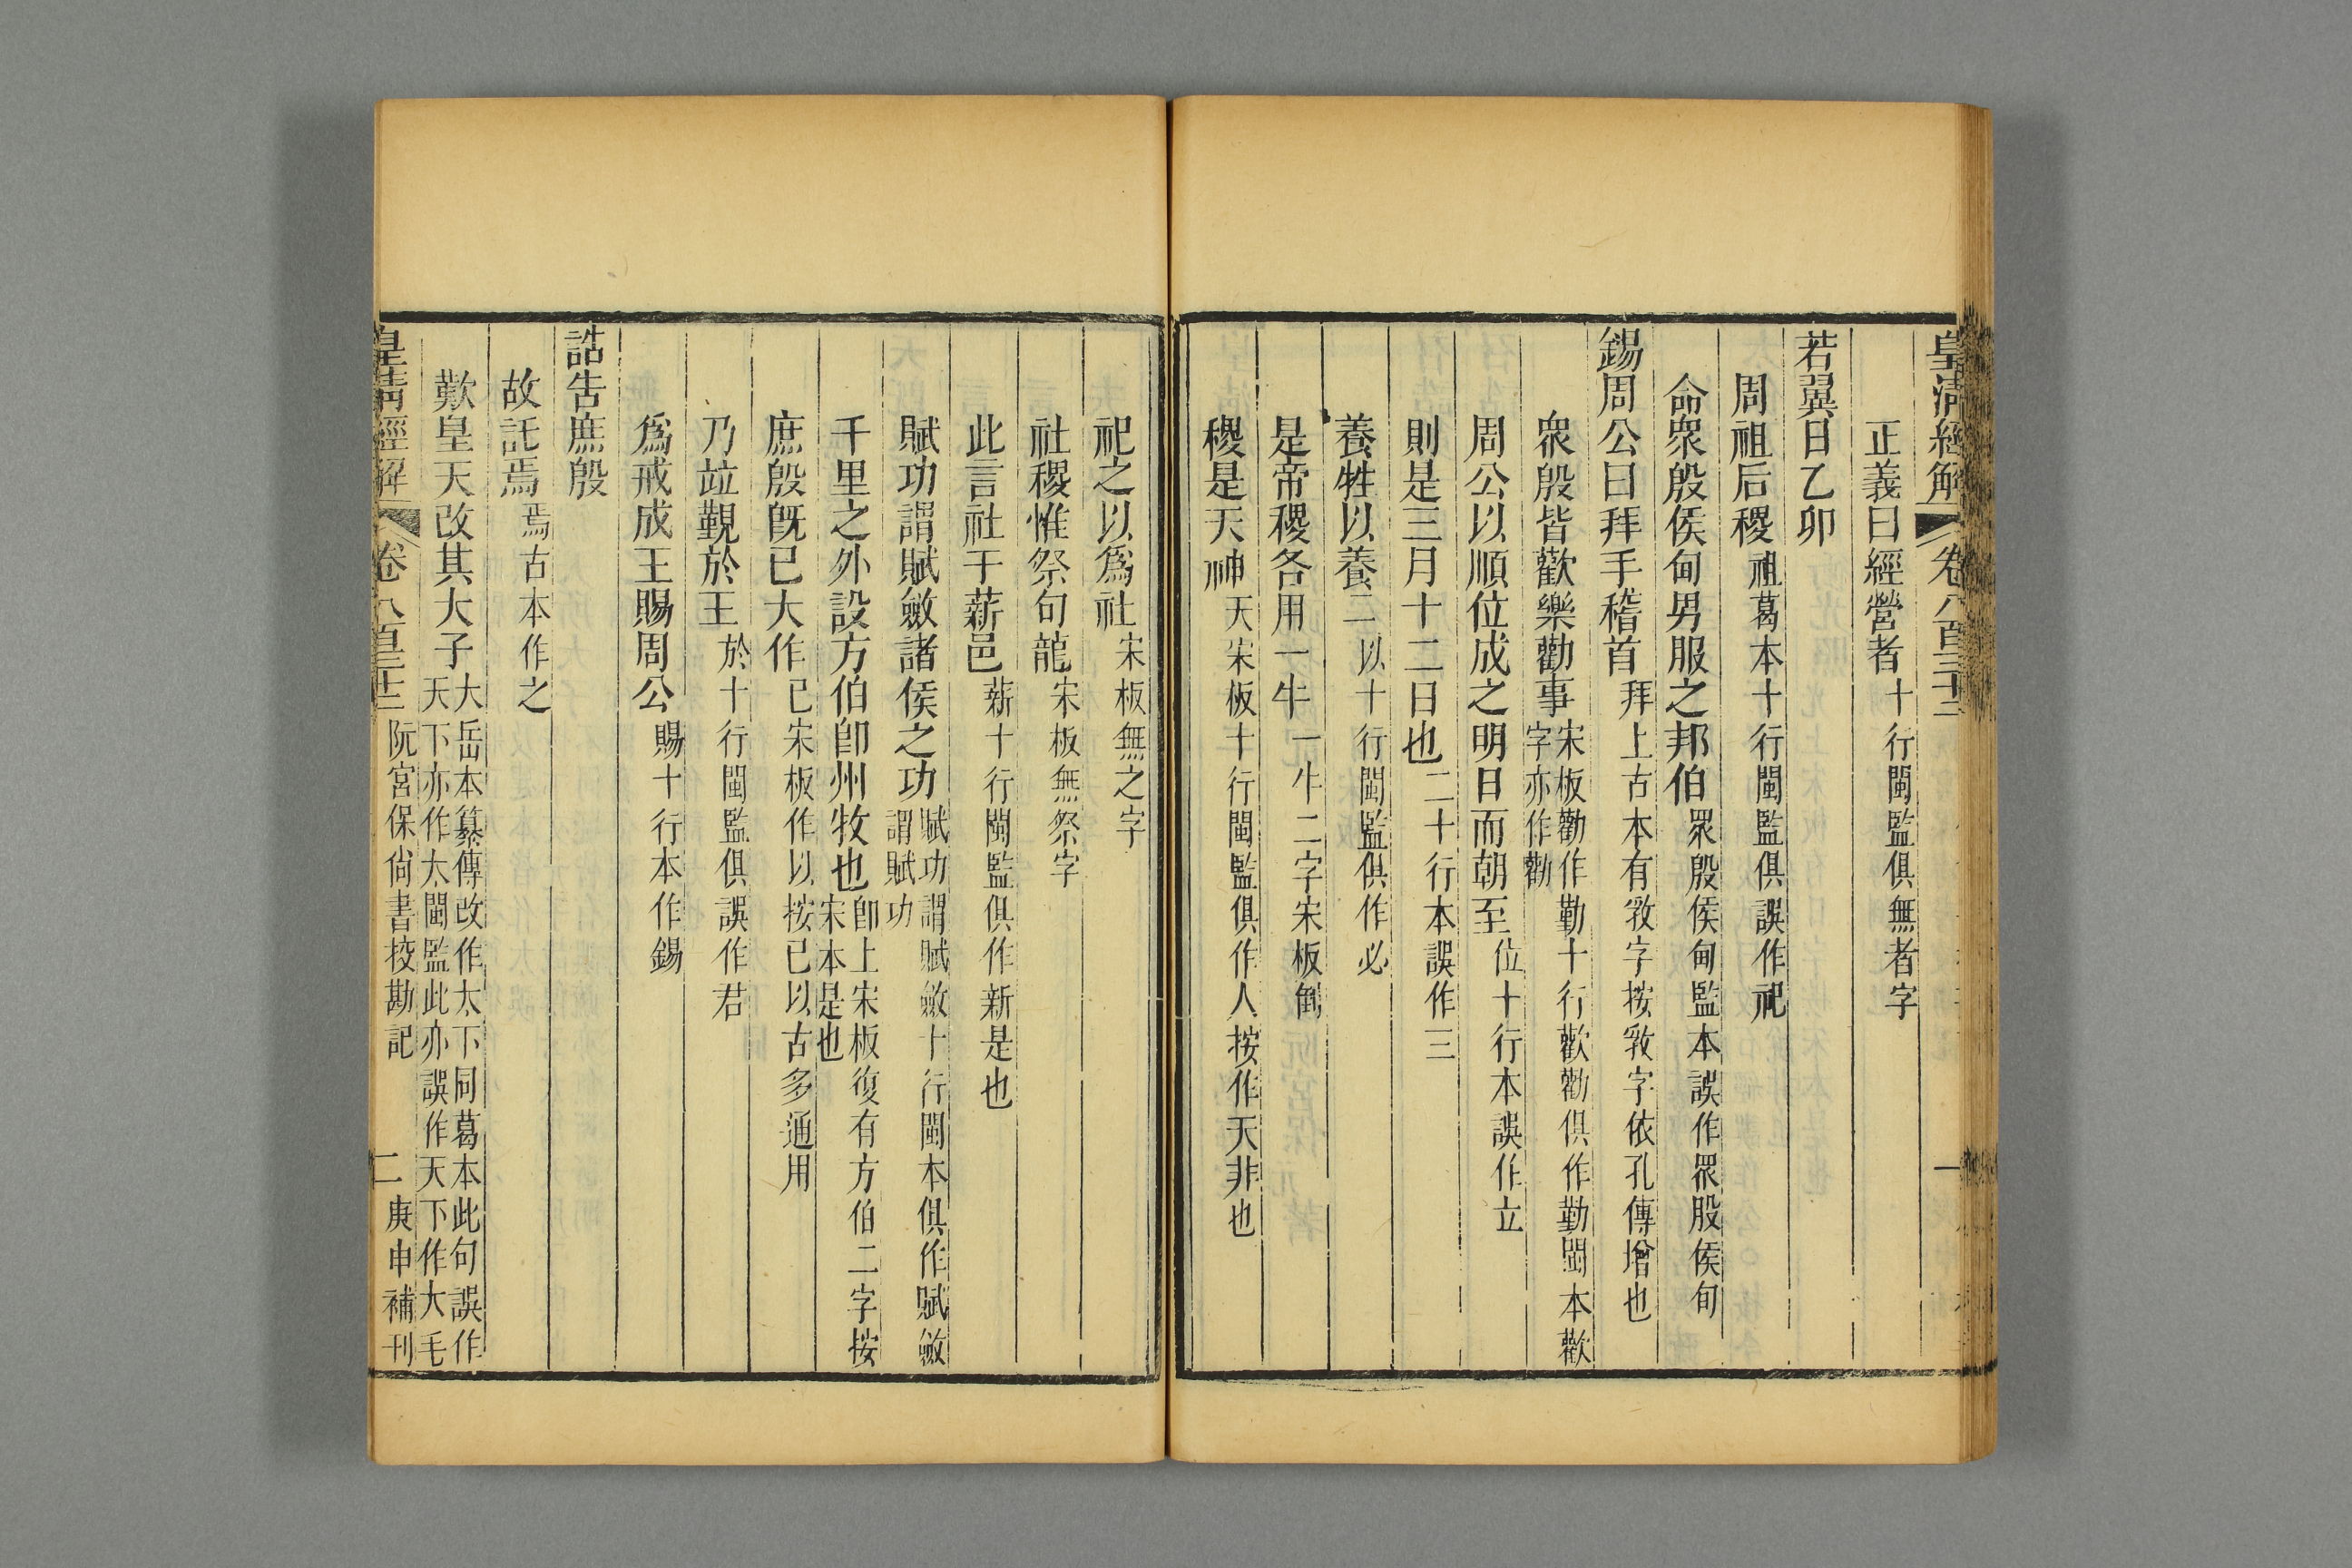 皇清經解 卷八百三十三 一
正義曰經營者十行閩監俱無者字
若翼日乙卯
周祖后稷祖葛本十行閩監俱誤作祀
命衆殷侯甸男服之邦伯眾殷侯甸監本誤作眾股侯旬
錫周公曰拜手稽首拜上古本有敢字按敢字依孔傳增也
衆殷皆歡樂勸事宋板勸作勤十行歡勸俱作勤閩本歡字亦作勸
周公以順位成之明日而朝至位十行本誤作立
則是三月十二日也二十行本誤作三
養牲以養二以十行閩監俱作必
是帝稷各用一牛一牛二字宋板倒
稷是天神天宋板十行閩監俱作人按作天非也
祀之以爲社宋板無之字
社稷惟祭句龍宋板無祭字
此言社于薪邑薪十行閩監俱作新是也
賦功謂賦斂諸侯之功賦功謂賦斂十行閩本俱作賦斂謂賦功
千里之外設方伯卽州牧也卽上宋板復有方伯二字按宋本是也
庶殷旣已大作已宋板作以按已以古多通用
乃竝覲於王於十行閩監俱誤作君
爲戒成王賜周公賜十行本作錫
誥告庶殷
故託焉焉古本作之
歎皇天改其大子大岳本纂傳改作太下同葛本此句誤作天下亦作太閩監此亦誤作天下作大毛
皇清經解 卷八百三十三 阮宮保尙書校勘記 二 庚申補刊